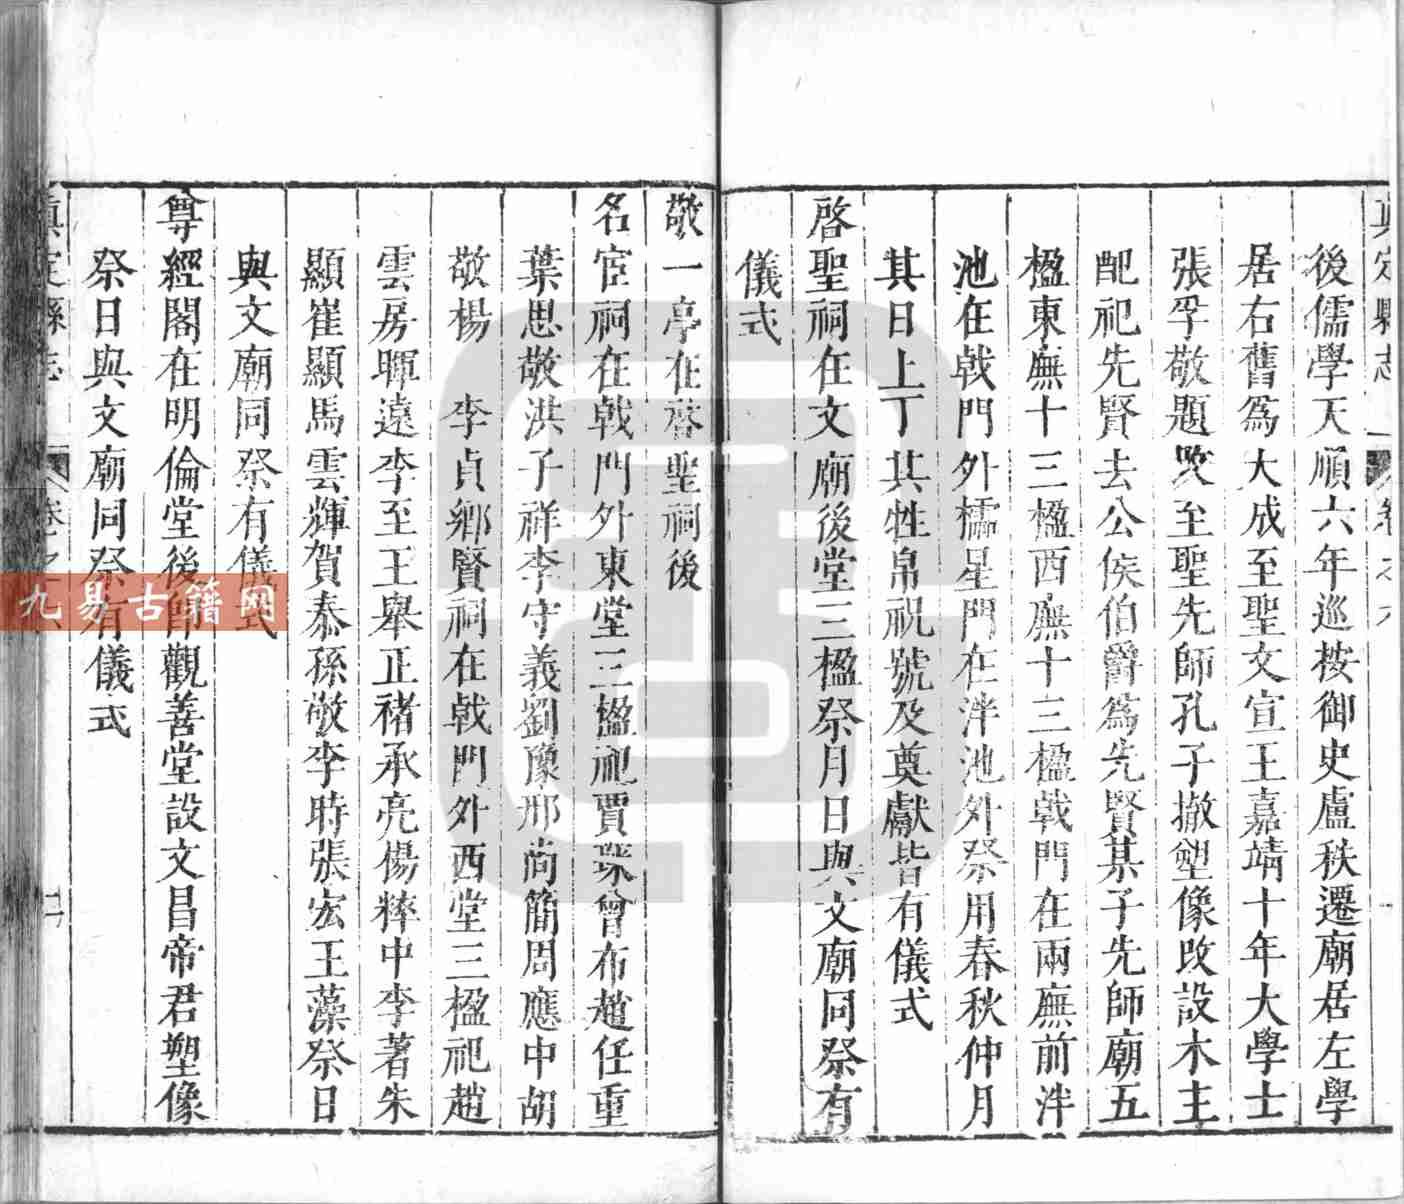 真定縣志
後儒學天順六年巡按御史盧秩遷廟居左學
居右舊為大成至聖文宣王嘉靖十年大學士
張孚敬題改至聖先師孔子撤塑像改設木主
配祀先賢去公侯伯爵為先賢某子先師廟五
楹東廡十三楹西廡十三楹戟門在兩廡前泮
池在戟門外櫺星門在泮池外祭用春秋仲月
其日上丁其牲帛祝號及奠獻皆有儀式
啓聖祠在文廟後堂三楹祭月日與文廟同祭有
儀式
敬一亭在啓聖祠後
名宦祠在戟門外東堂三楹祀賈琮曾布趙任重
葉思敬洪子祥李守義劉豫邢尚簡周應中胡
敬楊 李貞鄉賢祠在戟門外西堂三楹祀趙
雲房暉遠李至王舉正褚承亮楊粹中李著朱
顯崔顯馬雲輝賀泰孫敬李時張宏王藻祭日
與文廟同祭有儀式
尊經閣在明倫堂後師觀善堂設文昌帝君塑像
祭日與文廟同祭有儀式
真定縣志 卷之
九易古籍网